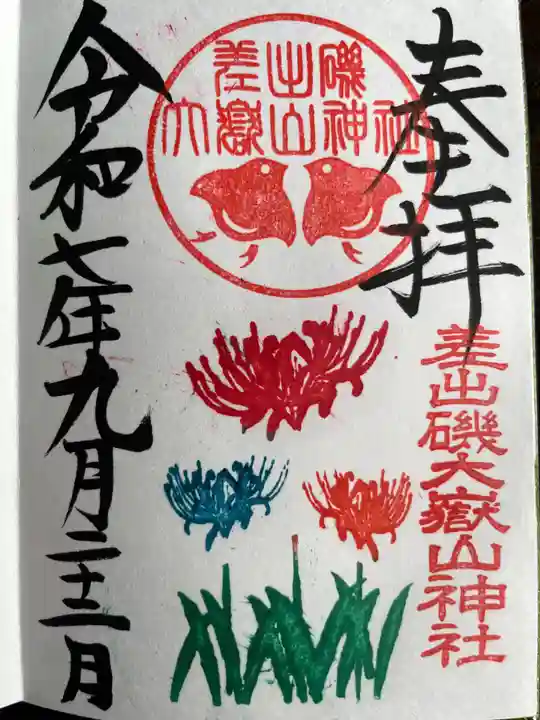 奉拝
差出磯大嶽山神社
差出磯
大嶽山神社
令和七年九月二十三日